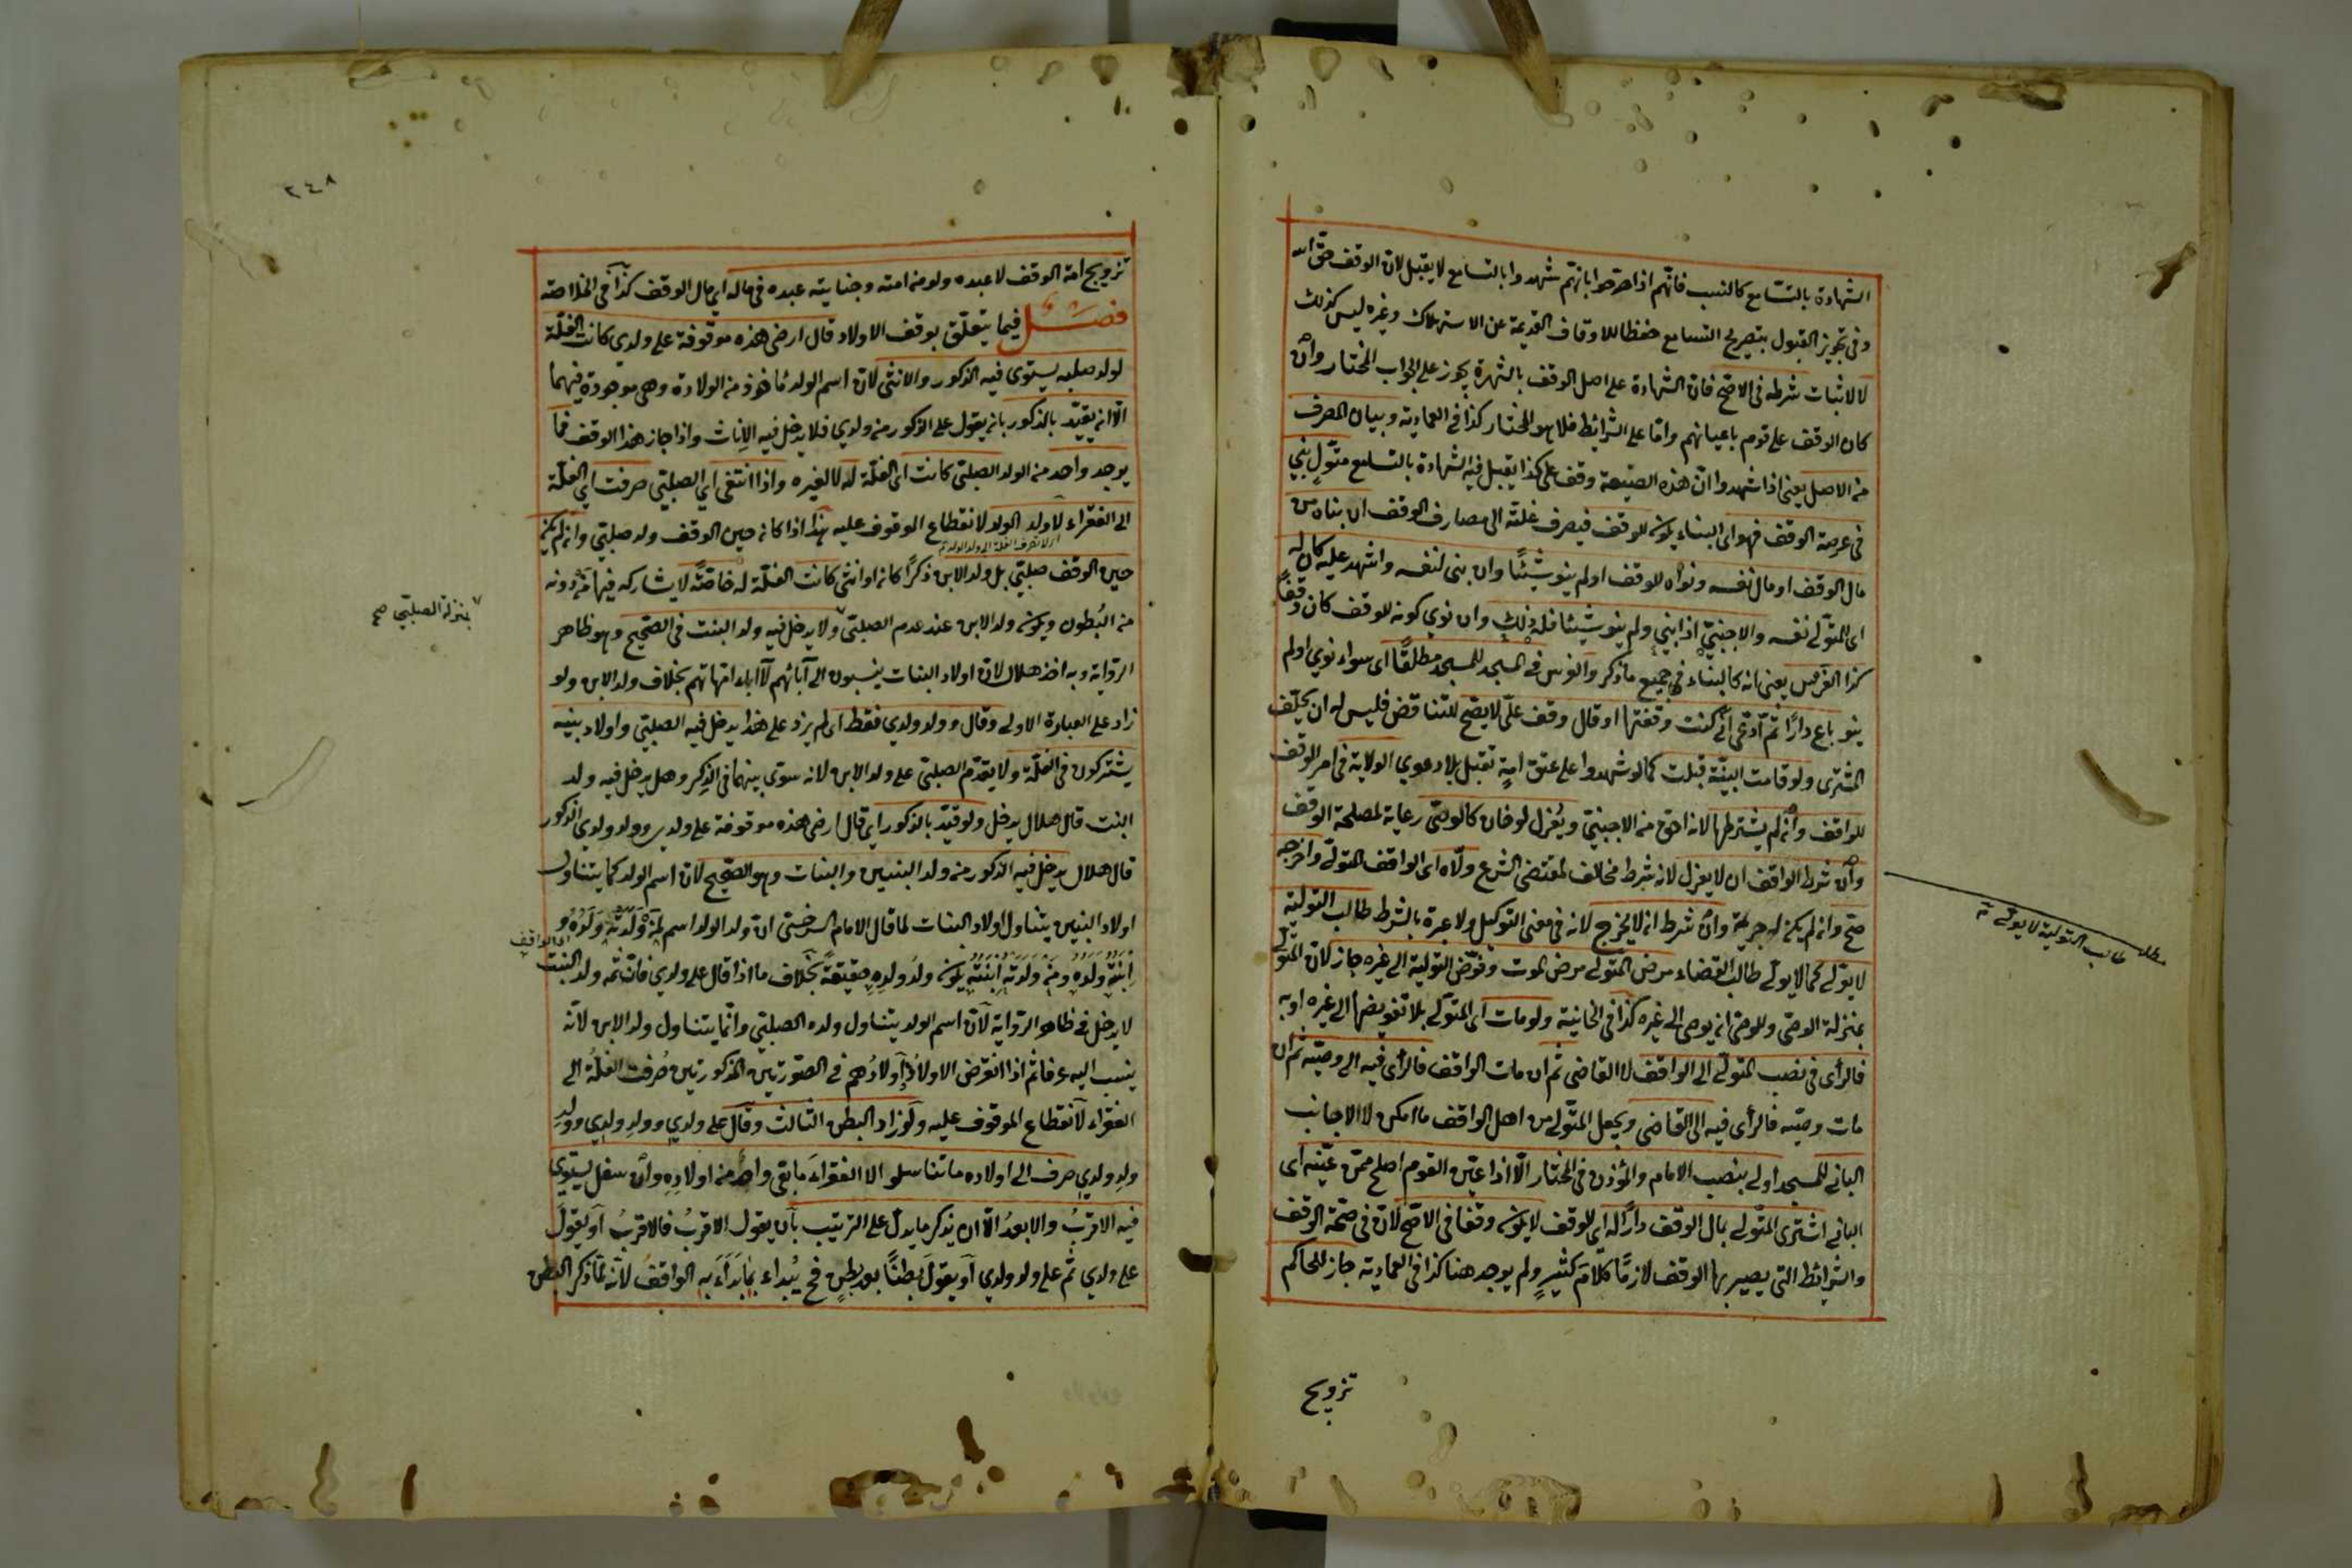 الشهادة بالتسامع كالنسب فانهم اذا صرحوا بانهم شهدوا بالتسامع لا يقبل لان الوقف حق الله
وفى تجويز القبول بتصريح التسامع حفظا للاوقاف القديمة عن الاستهلاك وغيره ليس كذلك
لا لاثبات شرطه فى الاصح فان الشهادة على اصل الوقف بالشهرة يجوز على الجواب المختار وان
كان الوقف على قوم باعيانهم واما على الشرائط فلا هو المختار كذا فى العمادية وبيان المصرف
من الاصل يعنى اذا شهدوا ان هذه الضيعة وقف على كذا يقبل فيه الشهادة بالتسامع متولٍ بنى
فى عرصة الوقف فهو اى البناء يكون للوقف فيصرف غلته الى مصارف الوقف ان بناه من
مال الوقف او مال نفسه ونواه للوقف اولم ينو شيئًا وان بنى لنفسه واشهد عليه كان له
اى للمتولى نفسه والاجنبى اذا بنى ولم ينو شيئا فله ذلك وان نوى كونه للوقف كان وقفًا
كذا الغرس يعنى انه كالبناء فى جميع ما ذكر والغرس فى المسجد للمسجد مطلقًا اى سواء نوى اولم
ينو باع دارًا ثم ادعى انى كنت وقفتها او قال وقف علىّ لا يصح للتناقض فليس له ان يحلف
المشترى ولو قامت البينة قبلت كما لو شهدوا على عتق امةٍ تقبل بلا دعوى الولاية فى امر الوقف
للواقف وان لم يشترطها لانه احق من الاجنبى ويُعزل لو خان كالوصى رعاية لمصلحة الوقف
وان شرط الواقف ان لا يعزل لانه شرط مخالف لمقتضى الشرع ولاه اى الواقف المتولى واخرجه
صح وان لم يكن له جريمة وان شرط انه لا يخرج لانه فى معنى التوكيل ولا عبرة بالشرط طالب التولية
لا يولى كما لا يولى طالب القضاء مرض المتولى مرض الموت وفوض التولية الى غيره جاز لان المتولى
بمنزلة الوصى وللوصى ان يوصى الى غيره كذا فى الخانية ولو مات اى المتولى بلا تفويضها الى غيره اوبه
فالرأى فى نصب المتولى الى الواقف لا القاضى ثم ان مات الواقف فالرأى فيه الى وصيه ثم ان
مات وصيه فالرأى فيه الى القاضى ويجعل المتولى من اهل الواقف ما امكن لا الاجانب
البانى للمسجد اولى بنصب الامام والمؤذن فى المختار الا اذا عين القوم اصلح ممن عينه اى
البانى اشترى المتولى بمال الوقف دارًا له اى للوقف لا يكون وقفا فى الاصح لان فى صحة الوقف
والشرائط التى يصير بها الوقف لازمًا كلامَ كثيرٍ ولم يوجد هنا كذا فى العمادية جاز للحاكم
تزويج
مطلب طالب التولية لا يولى
٢٤٨
تزويج امة الوقف لا عبده ولو من امته وجناية عبده فى ماله اى مال الوقف كذا فى الخلاصة
فصل فيما يتعلق بوقف الاولاد قال ارضى هذه موقوفة على ولدى كانت الغلة
لولد صلبه يستوى فيه الذكور والانثى لان اسم الولد مأخوذ من الولادة وهى موجودة فيهما
الا ان يقيد بالذكور بان يقول على الذكور من ولدى فلا يدخل فيه الاناث واذا جاز هذا الوقف فما
يوجد واحد من الولد الصلبى كانت اى الغلة له لا لغيره واذا انتفى اى الصلبى صرفت اى الغلة
الى الفقراء لا ولد الولد لانقطاع الموقوف عليه هذا اذا كان حين الوقف ولد صلبى وان لم يكن
حين الوقف صلبى بل ولد الابن ذكرًا كان او انثى كانت الغلة له خاصةً لا يشاركه فيها من دونه
من البُطون ويكون ولد الابن عند عدم الصلبى ولا يدخل فيه ولد البنت فى الصحيح وهو ظاهر
بمنزلة الصلبى صح
الرواية وبه اخذ هلال لان اولاد البنات ينسبون الى آبائهم لا آباء امهاتهم بخلاف ولد الابن ولو
زاد على العبارة الاولى وقال وولد ولدى فقط اى لم يزد على هذا يدخل فيه الصلبى واولاد بنيه
يشتركون فى الغلة ولا يقدم الصلبى على ولد الابن لانه سوى بينهما فى الذكر وهل يدخل فيه ولد
البنت قال هلال يدخل ولو قيد بالذكور اى قال ارضى هذه موقوفة على ولدى وولد ولدى الذكور
قال هلال يدخل فيه الذكور من ولد البنين والبنات وهو الصحيح لان اسم الولد كما يتناول
اولاد البنين يتناول اولاد البنات لما قال الامام السرخسى ان ولد الولد اسم لمن وَلَدَهُ وَلَدُهُ و
اِبنَتُه وَلَدُه ومَن وَلَدَته اِبنَتُه يكون ولدُ ولدِه حقيقةً بخلاف ما اذا قال على ولدى فان ثمه ولد البنت
اى الواقف
لا يدخل فى ظاهر الرواية لان اسم الولد يتناول ولده الصلبى وانما يتناول ولد الابن لانه
ينسب اليه عرفا ثم اذا انقرض الاولادُ واَولادُهم فى الصورتين المذكورتين صُرفت الغلةُ الى
الفقراء لانقطاع الموقوف عليه ولو زاد البطن الثالث وقال على ولدى وولدِ ولدى وولدِ
ولدِ ولدى صرف الى اولاده ما تناسلوا لا الفقراءَ ما بقى واحدٌ من اولادِهِ وان سفل يستوى
فيه الاقربُ والابعدُ الا ان يذكر ما يدل على الترتيب بان يقول الاقربُ فالاقربُ او يقولَ
على ولدى ثم على ولد ولدى او يقولَ بطنًا بعد بطنٍ فح يُبداء بما بَدَاَءَ به الواقفُ لانه لما ذكر البطن